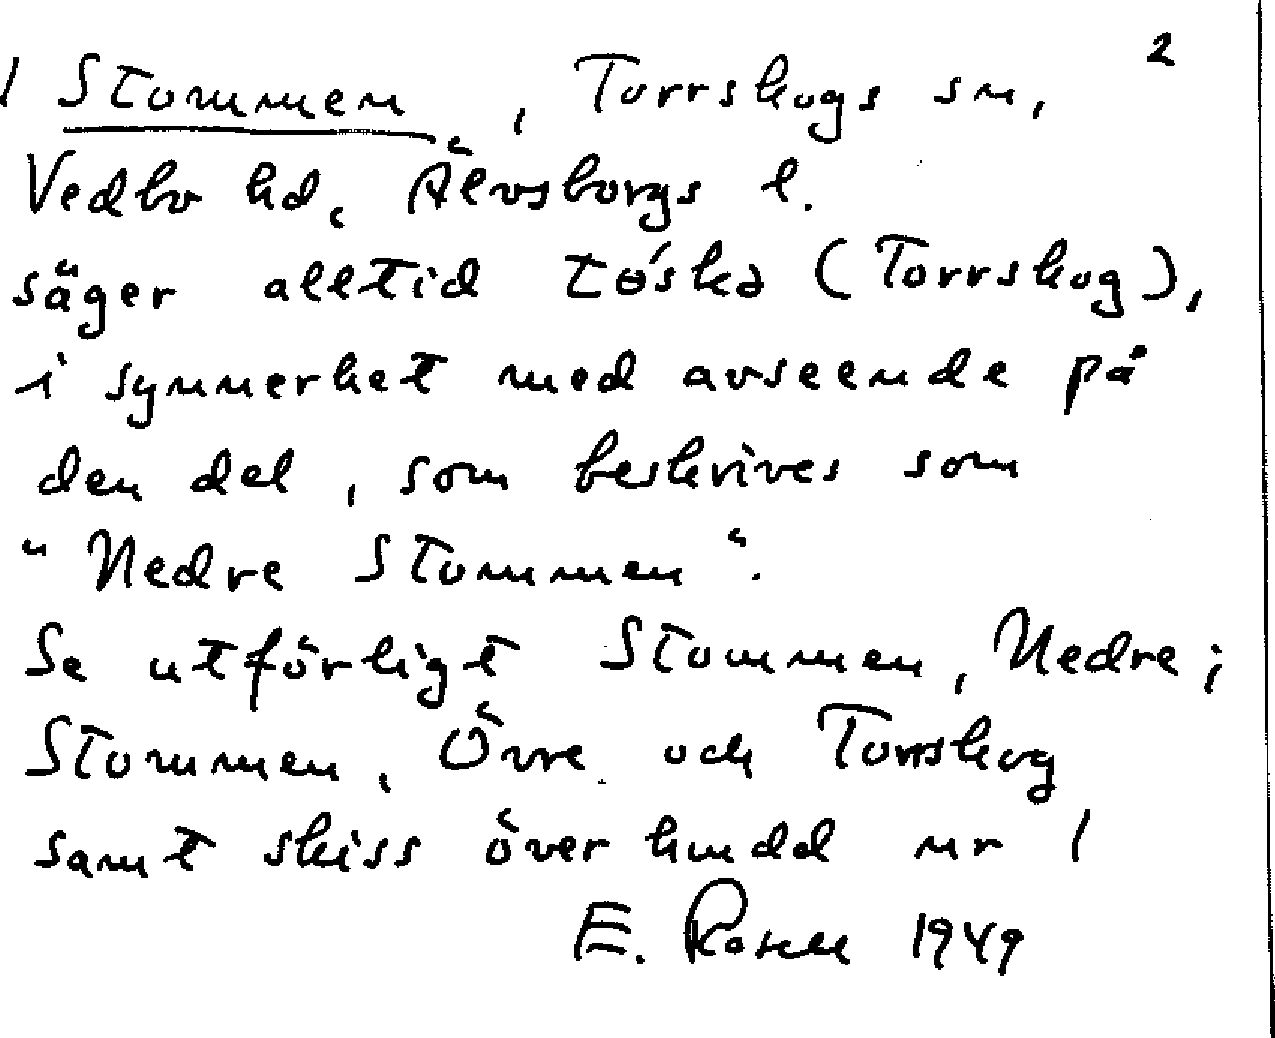 2
/ Stommen, Torrskogs sn,
Vedbo hd, Älvsborgs l.
säger alltid tɵ́skə (Torrskog),
i synnerhet med avseende på
den del, som beskrives som
"Nedre Stommen".
Se utförligt Stommen, Nedre;
Stommen, Övre och Torrskog
samt skiss över hmdel nr 1
E. Rosell 1949